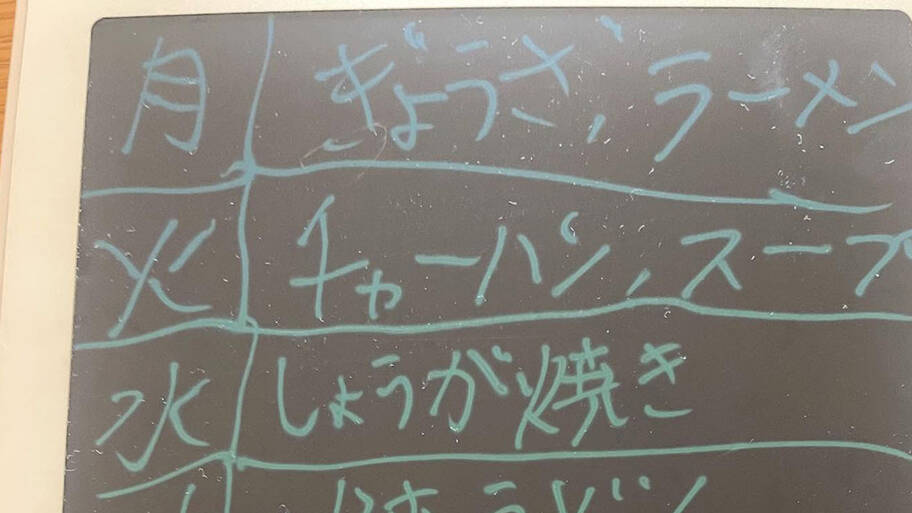 月 ぎょうざ、ラーメン
火 チャーハン、スープ
水 しょうが焼き